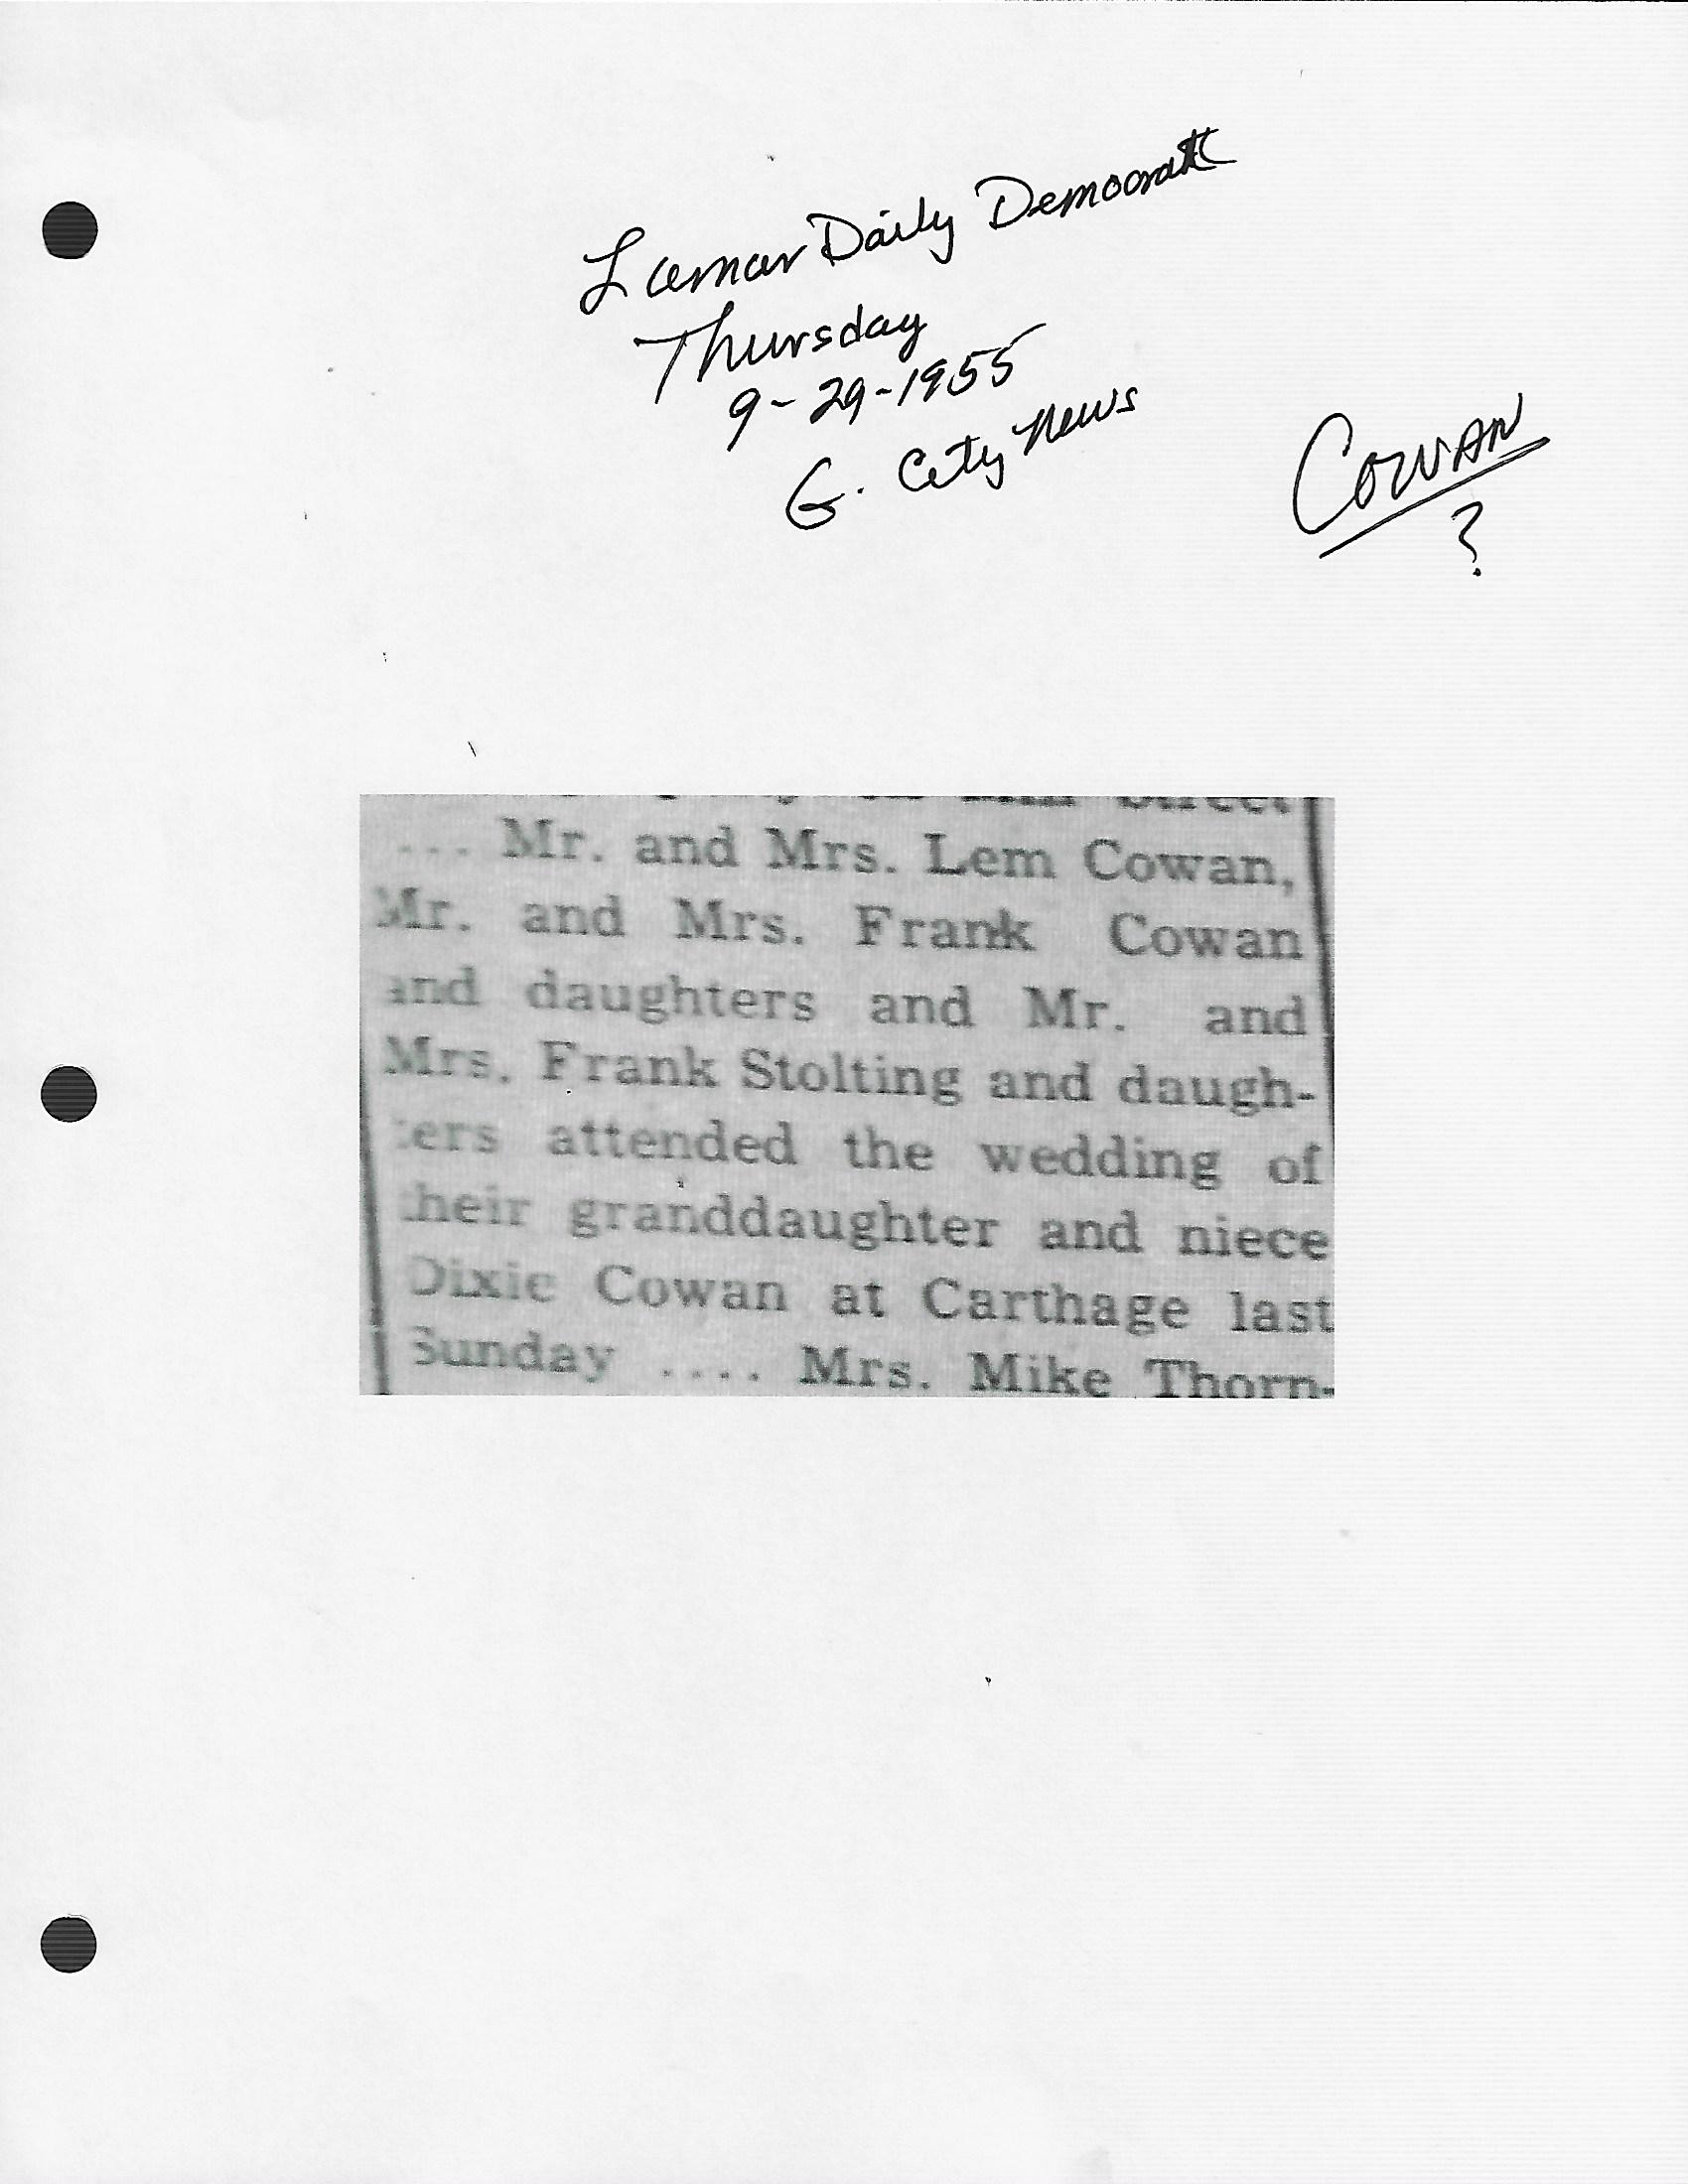 Lamar Daily Democrat
Thursday
9-29-1955
G. City News
COWAN
?
Street
... Mr. and Mrs. Lem Cowan,
Mr. and Mrs. Frank Cowan
and daughters and Mr. and
Mrs. Frank Stolting and daugh-
ters attended the wedding of
their granddaughter and niece
Dixie Cowan at Carthage last
Sunday .... Mrs. Mike Thorn-